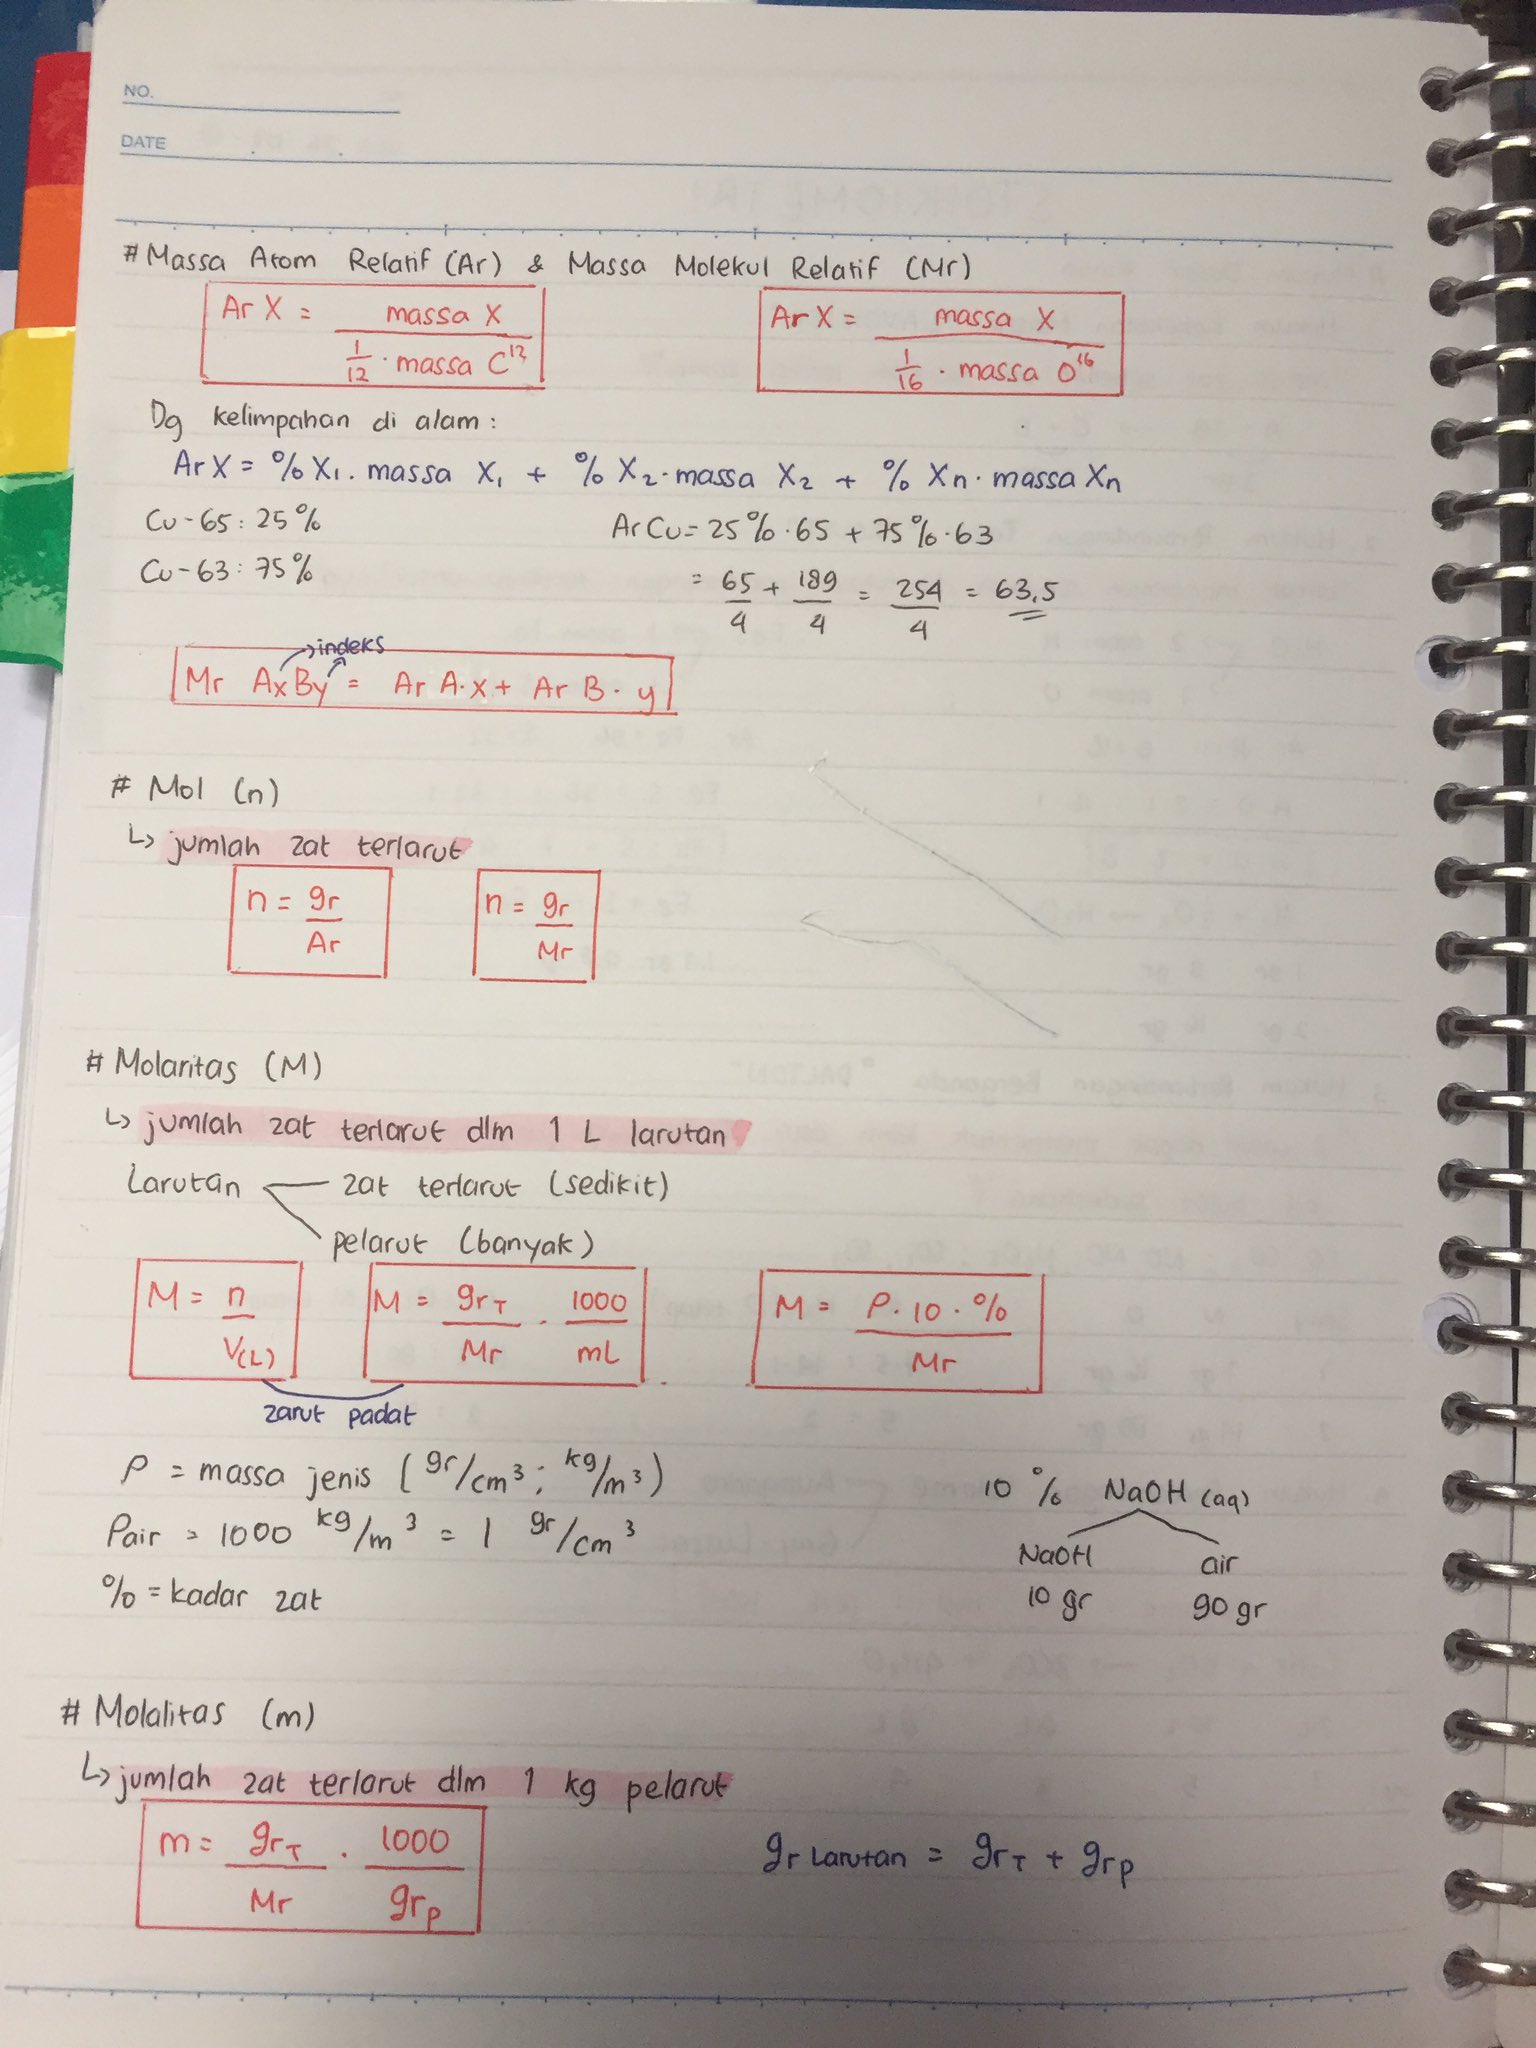 NO.
DATE
# Massa Atom Relatif (Ar) & Massa Molekul Relatif (Mr)
Ar X = massa X / 1/12 · massa C¹²
Ar X = massa X / 1/16 · massa O¹⁶
Dg kelimpahan di alam :
Ar X = % X₁ . massa X₁ + % X₂ · massa X₂ + % Xn · massa Xn
Cu-65 : 25%
Ar Cu = 25% · 65 + 75% · 63
Cu-63 : 75%
= 65/4 + 189/4 = 254/4 = 63,5
indeks
Mr AxBy = Ar A · x + Ar B · y
# Mol (n)
↳ jumlah zat terlarut
n = gr/Ar
n = gr/Mr
# Molaritas (M)
↳ jumlah zat terlarut dlm 1 L larutan
Larutan
zat terlarut (sedikit)
pelarut (banyak)
M = n/V(L)
M = grT/Mr . 1000/mL
M = ρ . 10 . % / Mr
zarut padat
ρ = massa jenis ( gr/cm³ ; kg/m³ )
ρair = 1000 kg/m³ = 1 gr/cm³
% = kadar zat
10 % NaOH (aq)
NaOH air
10 gr 90 gr
# Molalitas (m)
↳ jumlah zat terlarut dlm 1 kg pelarut
m = grT/Mr . 1000/grp
gr Larutan = grT + grp